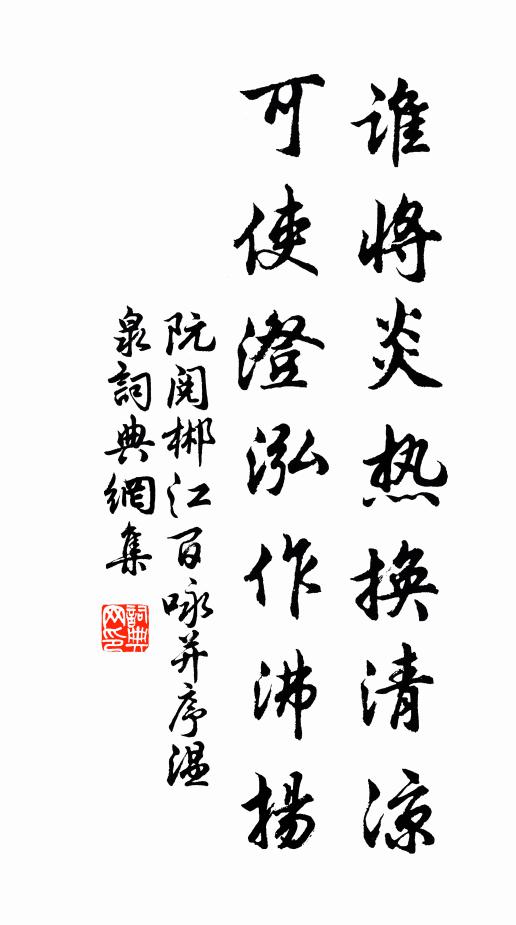 谁将炎热换清凉
可使澄泓作沸扬
阮阅郴江百咏并序温
泉詞典網集
詞典网印